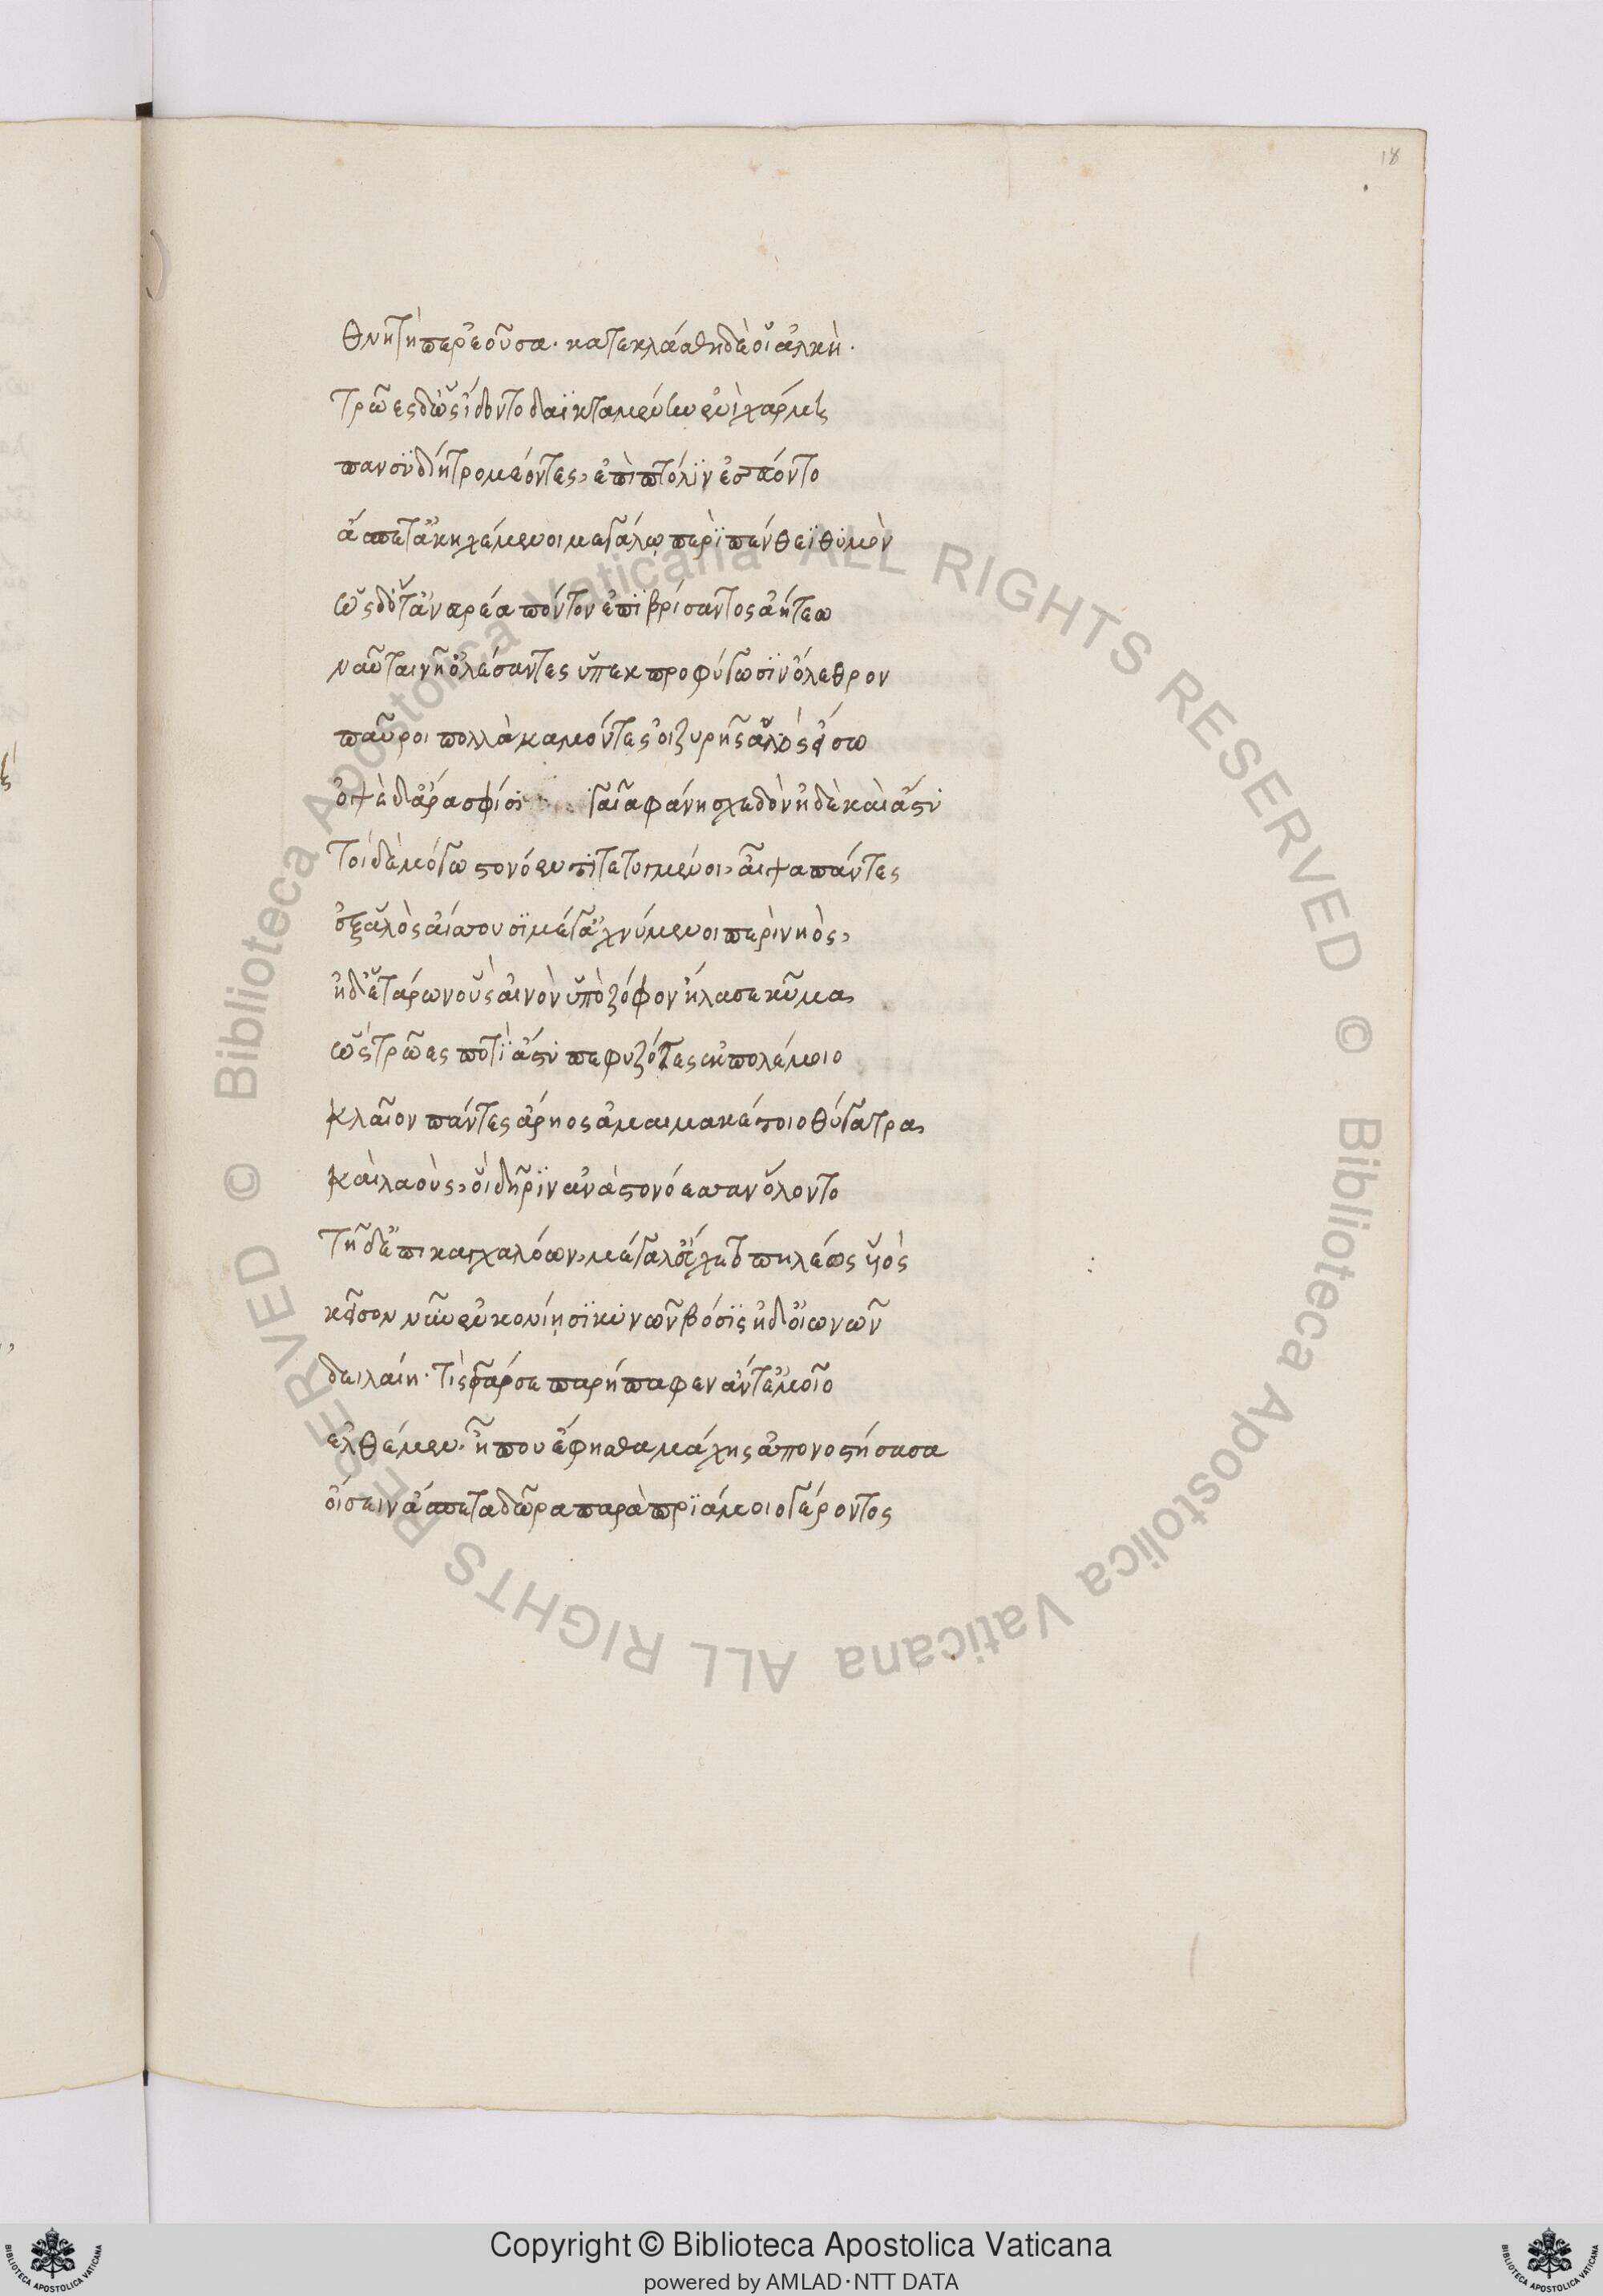 18
θνητή περ ἐοῦσα· κατεκλάσθη δέ οἱ ἀλκή·
Τρῶες δ' ὡς ἴδοντο δαϊκταμένην ἐνὶ χάρμῃ
πανσυδίῃ τρομέοντες, ἐπὶ πτόλιν ἐσσεύοντο
ἄσπετ' ἀκηχέμενοι μεγάλῳ περὶ πένθεϊ θυμὸν
ὡς δ' ὅτ' ἀν' εὐρέα πόντον ἐπιβρίσαντος ἀήτεω
ναῦται νῆ' ὀλέσαντες ὑπεκπροφύγωσιν ὄλεθρον
παῦροι πολλὰ καμόντες ὀϊζυρῆς ἁλὸς εἴσω
ὀψὲ δ' ἄρα σφίσι γαῖα φάνη σχεδὸν ἠδὲ καὶ ἄστυ
τοὶ δὲ μόγῳ στονόεντι τετρυμένοι, ἅψεα πάντες
ἐξ ἁλὸς ἀΐσσουσι μέγ' ἀχνύμενοι περὶ νηὸς,
ἠδ' ἑτάρων οὓς αἰνὸν ὑπὸ ζόφον ἤλασε κῦμα,
ὣς Τρῶες ποτὶ ἄστυ πεφυζότες ἐκ πολέμοιο
κλαῖον πάντες ἄρηος ἀμαιμακέτοιο θύγατρα,
καὶ λαοὺς, οἳ δῆριν ἀνὰ στονόεσσαν ὄλοντο
τῇ δ' ἐπικαγχαλόων, μεγάλ' εὔχετο πηλέως υἱὸς
κεῖσο νῦν ἐν κονίῃσι κυνῶν βόσις ἠδ' οἰωνῶν
δειλαίη· τίς γάρ σε παρήπαφεν ἄντ' ἐμοῖο
ἐλθέμεν· ἦ που ἔφησθα μάχης ἀπονοστήσασα
οἴσειν ἄσπετα δῶρα παρὰ πριάμοιο γέροντος
Copyright © Biblioteca Apostolica Vaticana
powered by AMLAD·NTT DATA
© Biblioteca Apostolica Vaticana ALL RIGHTS RESERVED © Biblioteca Apostolica Vaticana ALL RIGHTS RESERVED